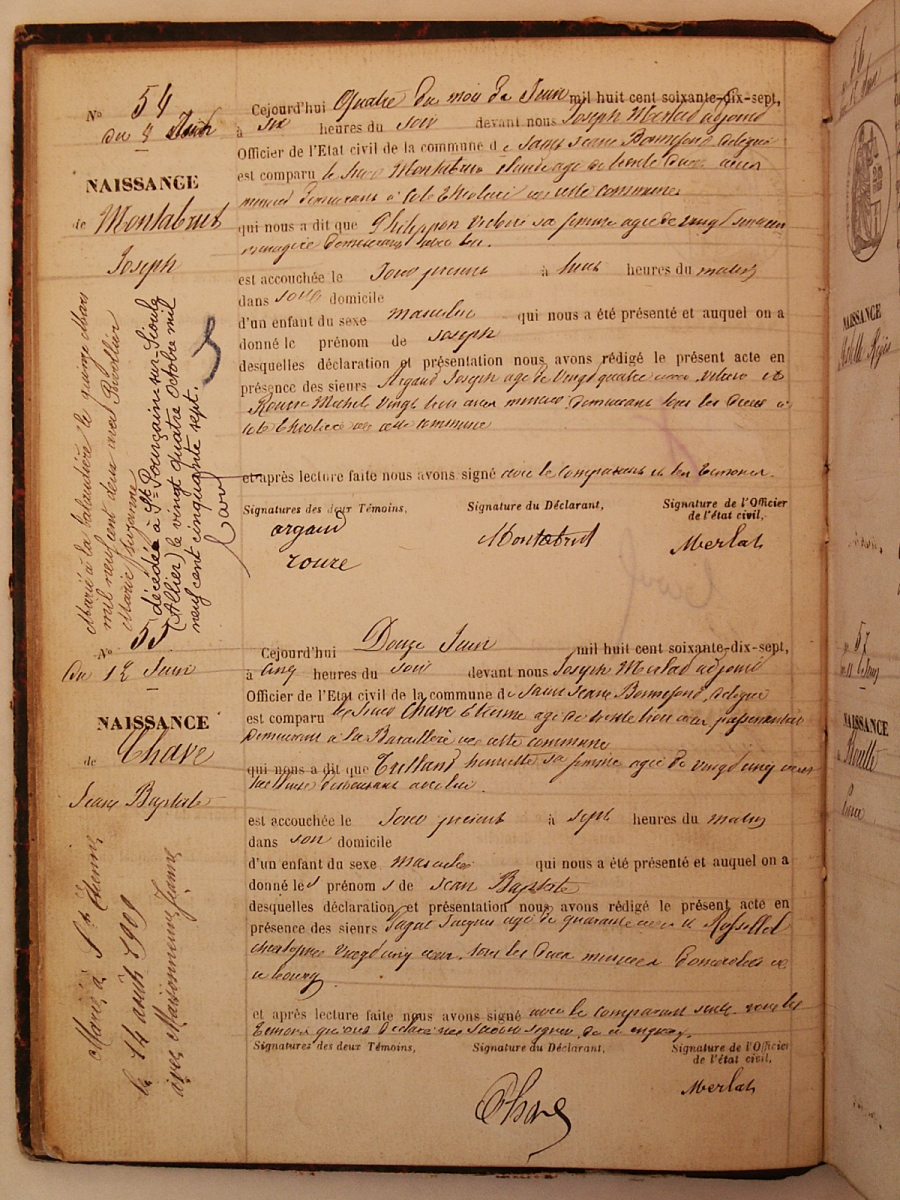 N° 54
du 4 Juin
NAISSANCE
de Montabrut
Joseph
Marié à la Talaudière le quinze Mars
mil neuf cent deux avec Revollier
Marie Suzanne
décédé à St Pourçain-sur-Sioule
(Allier) le vingt quatre Octobre mil
neuf cent cinquante sept.
Cejourd'hui Quatre du mois de Juin mil huit cent soixante-dix-sept,
à six heures du soir devant nous Joseph Merlat adjoint
Officier de l'Etat civil de la commune de Saint Jean Bonnefond, délégué
est comparu le sieur Montabrut âgé de trente deux ans
mineur demeurant à cette commune
qui nous a dit que Philippon sa femme agée de vingt
ménagère demeurant avec lui.
est accouchée le Jour présent à heures du matin
dans son domicile
d'un enfant du sexe masculin qui nous a été présenté et auquel on a
donné le prénom de Joseph
desquelles déclaration et présentation nous avons rédigé le présent acte en
présence des sieurs Argaud Joseph age de vingt quatre ans et
Rouze Michel vingt trois ans mineur demeurant tous les deux à
de cette commune
et après lecture faite nous avons signé avec le comparant et les témoins.
Signatures des deux Témoins,
Signature du Déclarant,
Signature de l'Officier
de l'état civil,
argaud
Montabrut
Merlat
rouze
N° 55
du 12 Juin
NAISSANCE
de Chave
Jean Baptiste
Marié à St Etienne
le 14 août 1909
avec Maisonneuve Jeanne
Cejourd'hui Douze Juin mil huit cent soixante-dix-sept,
à cinq heures du soir devant nous Joseph Merlat adjoint
Officier de l'Etat civil de la commune de Saint Jean Bonnefond, délégué
est comparu le sieur Chave Etienne age de trente trois ans passementier
demeurant à la Baraillère de cette commune
qui nous a dit que sa femme agée de vingt cinq ans
demeurant avec lui.
est accouchée le Jour présent à sept heures du matin
dans son domicile
d'un enfant du sexe masculin qui nous a été présenté et auquel on a
donné les prénoms de Jean Baptiste
desquelles déclaration et présentation nous avons rédigé le présent acte en
présence des sieurs Jacques age de quarante ans et
christophe vingt cinq ans, tous les deux mineurs domiciliés
au bourg
et après lecture faite nous avons signé avec le comparant seul, non les
témoins qui ont déclaré ne savoir signer, de ce enquis.
Signatures des deux Témoins,
Signature du Déclarant,
Signature de l'Officier
de l'état civil,
Chave
Merlat
56
NAISSANCE
57
NAISSANCE